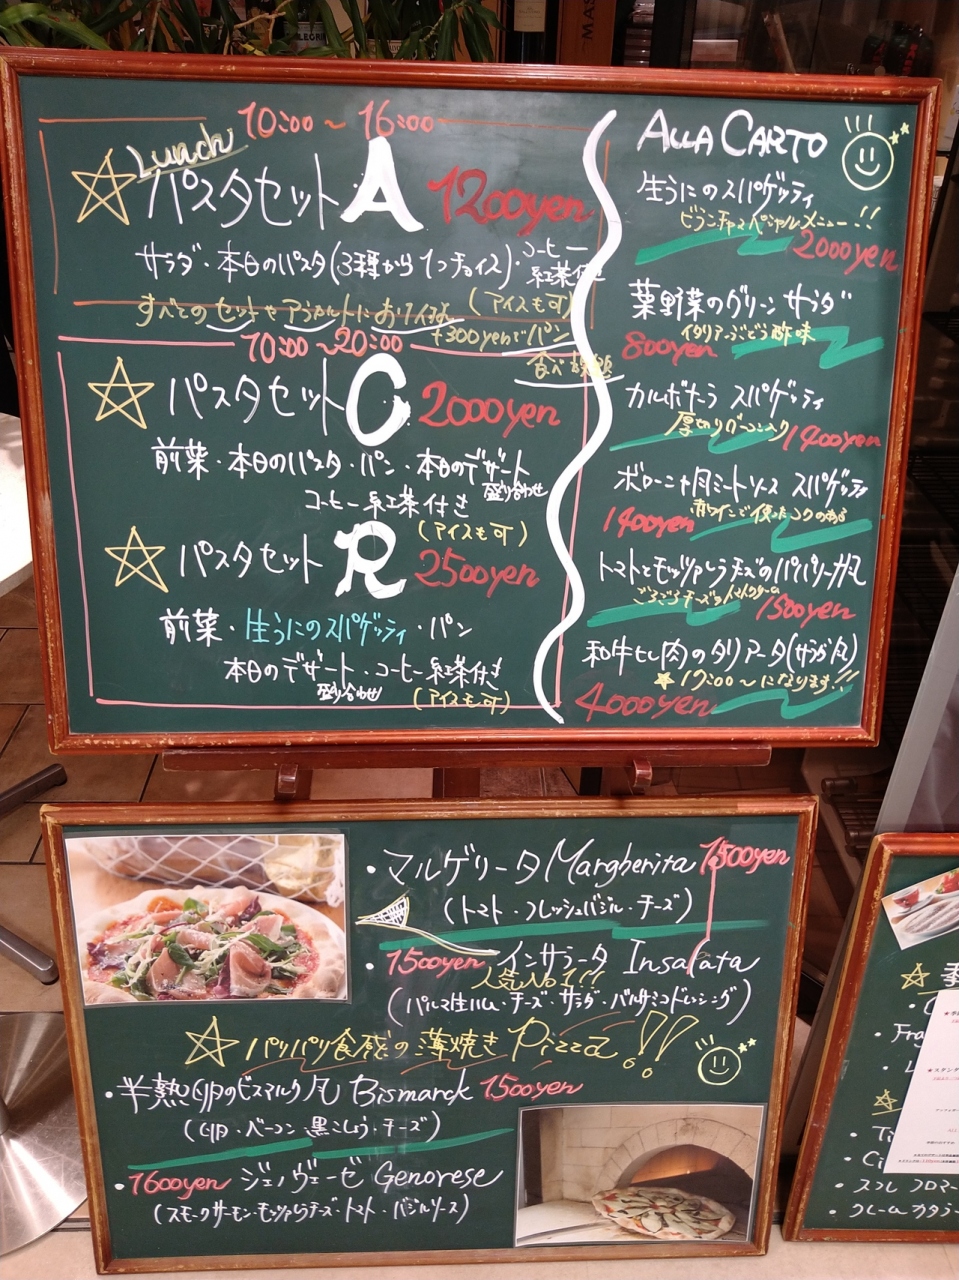 10:00 ~ 16:00
Lunch
パスタセット A 1200yen
サラダ・本日のパスタ(3種から1つチョイス)・コーヒー
紅茶付き
(アイスも可)
すべてのセットやアラカルトに
+300yenでパン
食べ放題
10:00 ~ 20:00
パスタセット C 2000yen
前菜・本日のパスタ・パン・本日のデザート
盛り合わせ
コーヒー紅茶付き
(アイスも可)
パスタセット R 2500yen
前菜・生うにのスパゲッティ・パン
本日のデザート・コーヒー紅茶付き
盛り合わせ
(アイスも可)
ALLA CARTO
生うにのスパゲッティ
スペシャルメニュー!!
2000yen
葉野菜のグリーンサラダ
イタリアーンぶどう酢味
800yen
カルボナーラ スパゲッティ
厚切りベーコン入り
1400yen
ボローニャ風ミートソース スパゲッティ
赤ワインで使ったコクのある
1400yen
トマトとモッツァレラチーズの
ごろごろチーズのトマトクリーム
1500yen
和牛モモ肉のタリアータ(サラダ風)
17:00~になります!!
4000yen
・マルゲリータ Margherita 1500yen
(トマト・フレッシュバジル・チーズ)
・1500yen インサラータ Insalata
人気No1!!
(パルマ生ハム・チーズ・サラダ・バルサミコドレッシング)
パリパリ食感の薄焼きPizza!!
・半熟卵のビスマルク風 Bismarck 1500yen
(卵・ベーコン・黒こしょう・チーズ)
・1600yen ジェノヴェーゼ Genorese
(スモークサーモン・モッツァレラチーズ・トマト・バジルソース)